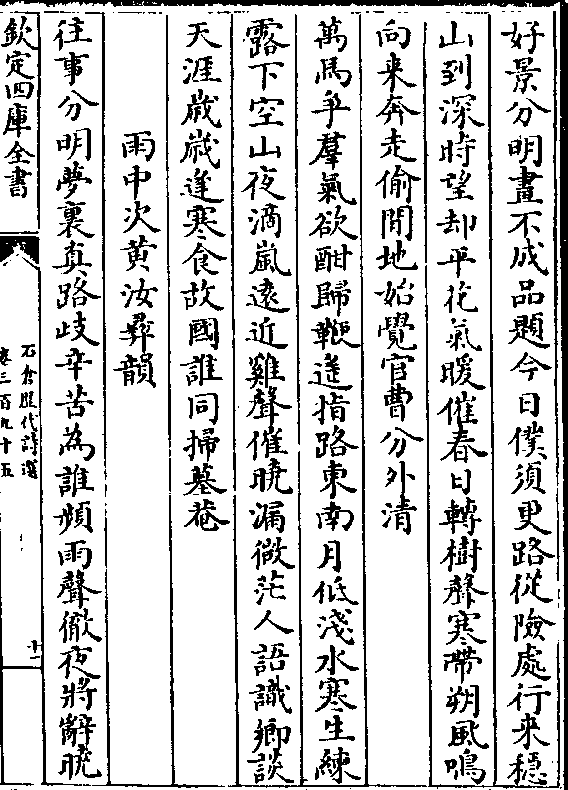 好景分明畫不成品題今日僕須更路從險處行来穩
山到深時望却平花氣暖催春日轉樹聲寒帶朔風鳴
向来奔走偷閒地始覺官曹分外清
萬馬爭羣氣欲酣歸鞭遥指路東南月低淺水寒生練
露下空山夜滴嵐遠近雞聲催曉漏微茫人語識鄉談
天涯歳歳逢寒食故國誰同掃墓菴
雨中次黄汝彞韻
往事分明夢裏真路歧辛苦為誰頻雨聲徹夜將辭曉
欽定四庫全書
石倉歴代詩選
卷三百九十五
十一